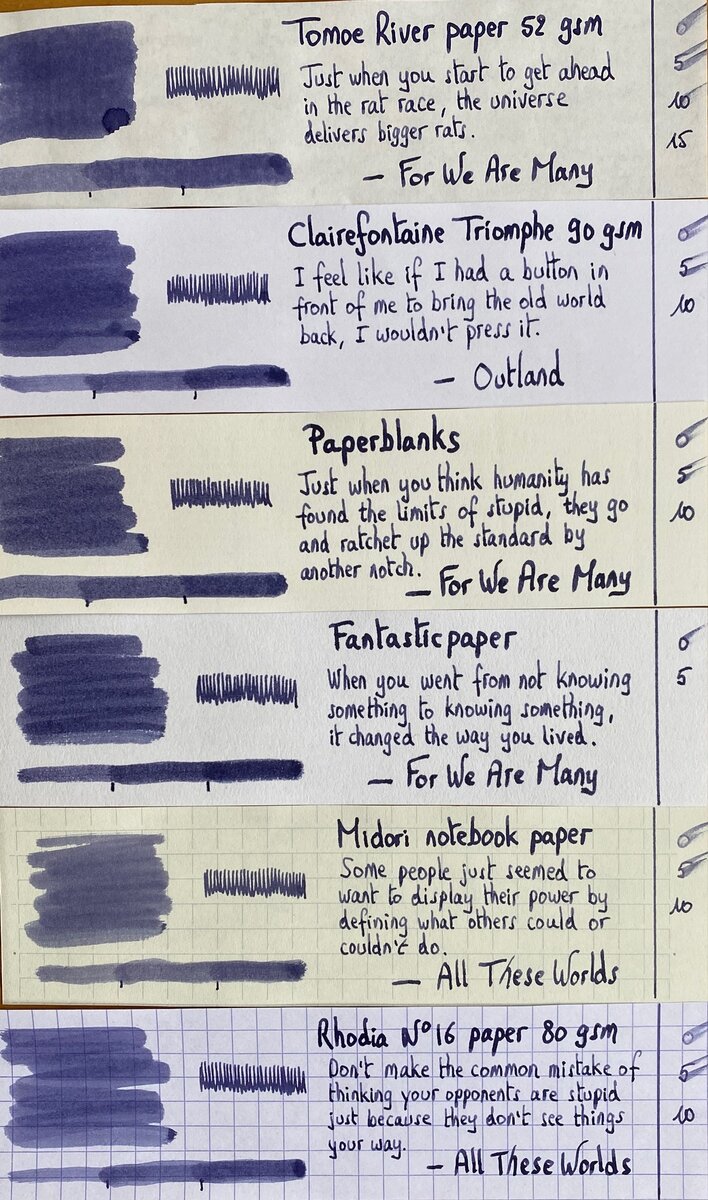 Tomoe River paper 52 gsm
Just when you start to get ahead
in the rat race, the universe
delivers bigger rats.
— For We Are Many
0
5
10
15
Clairefontaine Triomphe 90 gsm
I feel like if I had a button in
front of me to bring the old world
back, I wouldn't press it.
— Outland
0
5
10
Paperblanks
Just when you think humanity has
found the limits of stupid, they go
and ratchet up the standard by
another notch.
— For We Are Many
0
5
10
Fantasticpaper
When you went from not knowing
something to knowing something,
it changed the way you lived.
— For We Are Many
0
5
Midori notebook paper
Some people just seemed to
want to display their power by
defining what others could or
couldn't do.
— All These Worlds
0
5
10
Rhodia N°16 paper 80 gsm
Don't make the common mistake of
thinking your opponents are stupid
just because they don't see things
your way.
— All These Worlds
0
5
10